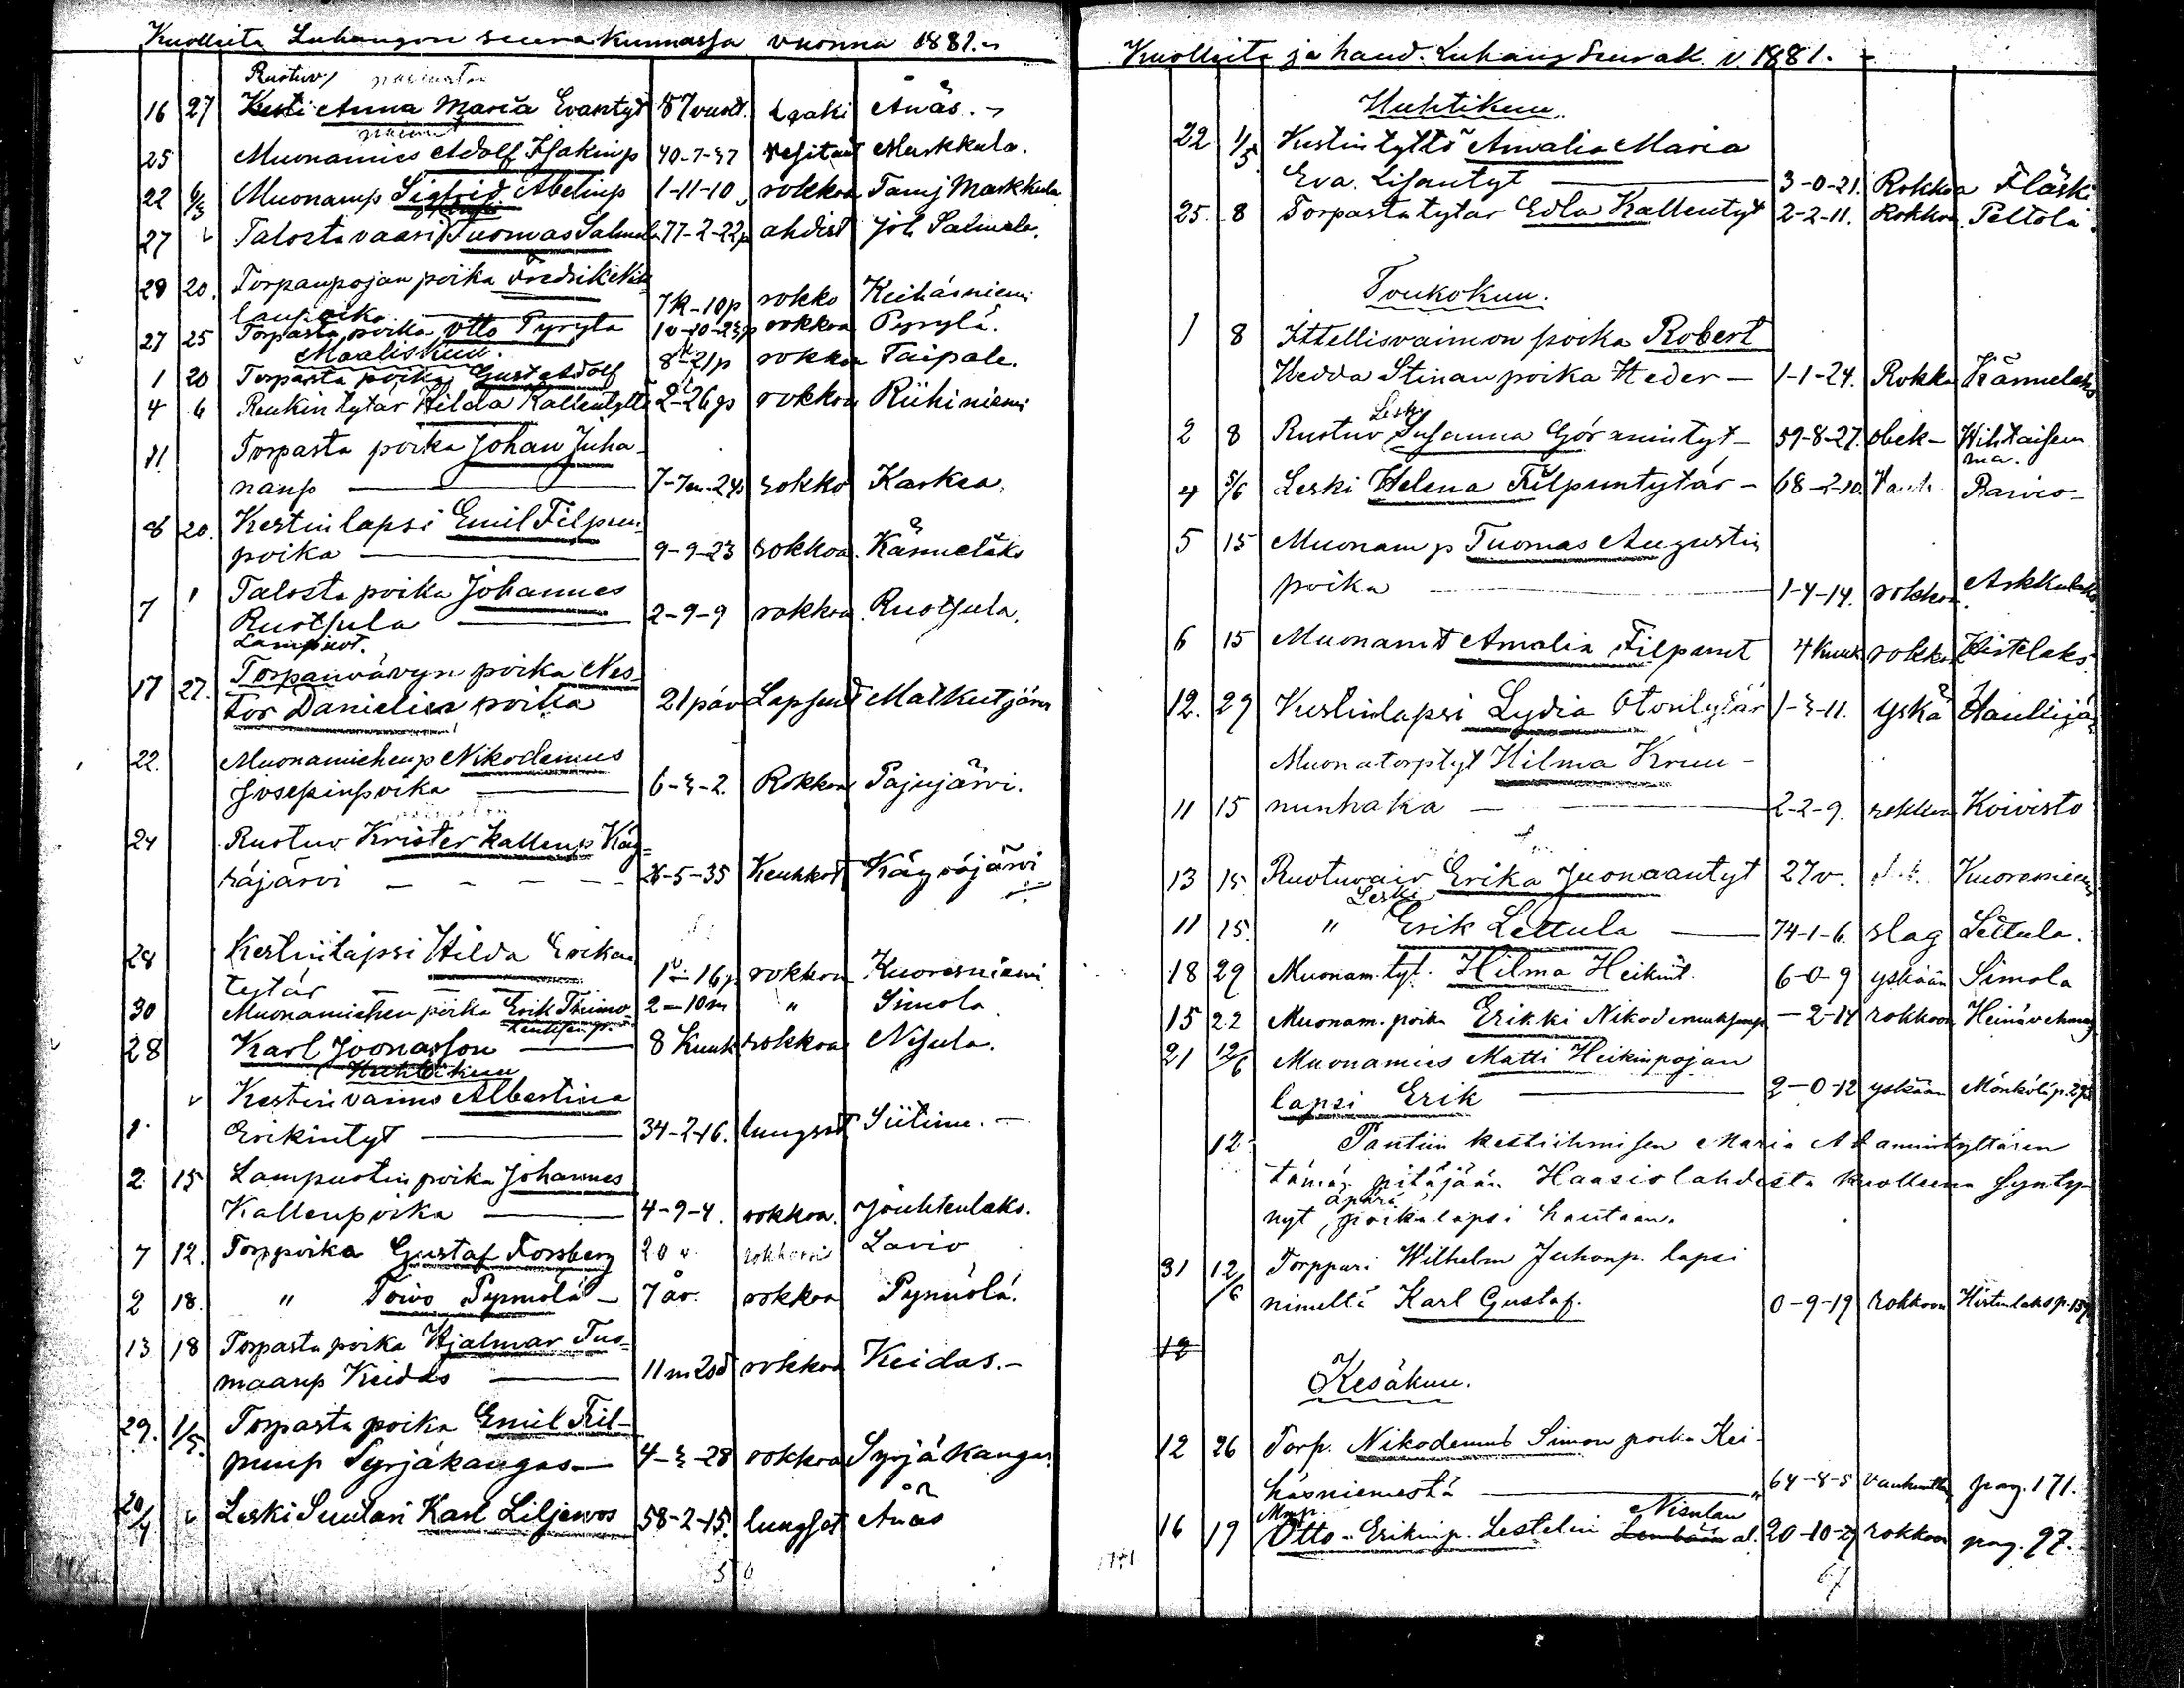 Kuolleita Luhangon seurakunnassa vuonna 1881.
Ruotuv
16 27 Leski Anna Maria Evantyt 87 vuot. Anäs.
25 Muonamies Adolf Isakinp 40-7-27 Markkula.
22 6/3 Muonamp Sigfrid Abelinp 1-11-10 rokkoa Markkula
27 " Talosta vaari Tuomas Salmela 77-2-22p ahdist Joh Salmela.
28 20. Torpanpojan poika Fredrik
7k-10p rokko Keihäsniemi
27 25 Torpasta poika Otto Pyrylä rokkoa Pyrylä.
Maaliskuu.
1 20 Torpasta poika Gust Adolf 8-21p rokkoa Taipale.
4 6 Renkin tytär Hilda Kallentyttö 2-26p rokkoa Riihiniemi
11 Torpasta poika Johan Juha-
nanp 7-7m-24p rokko Karkea.
8 20. Kestinlapsi Emil Filpun
poika 9-9-23 rokkoa Kännelaks
7 Talosta poika Johannes
Ruotsula 2-9-9 rokkoa Ruotsula.
Lampuot.
17 27. Torpanvävyn poika Nes-
tor Danielin poika 21 päiv Matkutjärvi
22. Muonamiehenp Nikodemus
Josepinpoika 6-3-2. Rokkoa Pajujärvi.
24 Ruotuv Krister Kallenp Käy-
räjärvi 26-5-35 Keuhkot Käyräjärvi
28 Kestinlapsi Hilda Erikan
tytär 1-16p rokkoa Kuoresniemi
30 Muonamiehen poika Erik Thimo- 2-10m " Simola
28 Karl Joonasson 8 Kuuk rokkoa Nisula.
Huhtikuu
" Kestin vaimo Albertina
1. Erikintyt 34-2-16. lungsot Siitime.
2 15 Lampuotin poika Johannes
Kallenpoika 4-9-4. rokkoa. Jouhtenlaks.
7 12. Torppoika Gustaf Forsberg 20 v. rokkoon Lavio
2 18. " Toivo Pynnölä 7 år. rokkoa Pynnölä.
13 18 Torpasta poika Hjalmar Tuo-
maanp Keidas 11m 20d rokkoa Keidas.
29. 1/5. Torpasta poika Emil Fil-
punp Syrjäkangas 4-3-28 rokkoa Syrjäkangas
20/4 " Leski Suutari Karl Liljeroos 58-2-15. lungsot Anäs
56
Kuolleita ja haud. Luhang Seurak. v. 1881.
Huhtikuu.
22 1/5. Kestin tyttö Amalia Maria
Eva. Lisantyt 3-0-21. Rokkoa Fläski
25. 8 Torpasta tytär Edla Kallentyt 2-2-11. Rokkoa Peltola.
Toukokuu.
1 8 Ittellisvaimon poika Robert
Hedda Stinan poika Heder 1-1-24. Rokko Kännelaks
Leski
2 8 Ruotuv Susanna Göranintyt 59-8-27. obek-
4 5/6 Leski Helena Filpuntytär 68-2-10. Vanh.
5 15 Muonam p Tuomas Augustin
poika 1-4-14. rokkoa.
6 15 Muonamt Amalia Filpunt 4 Kuuk rokkoa
12. 29 Kestinlapsi Lydia Otontytär 1-3-11. yskä
Muonatorptyt Hilma Kruu-
11 15 nunhaka 2-2-9. rokkoa Koivisto
13 15 Ruotuvaiv Erika Juonaantyt 27v. Kuoresniemi
Leski
11 15. " Erik Lettula 74-1-6. slag Lettula.
18 29 Muonam. tyt. Hilma Heikint. 6-0-9 yskään Simola
15 22 Muonam. poika Erikki Nikodemuksenp -2-14 rokkoon
21 12/6 Muonamies Matti Heikinpojan
lapsi Erik 2-0-12 yskään
12. Pantiin kestiihmisen Maria Adamintyttären
tämän pitäjään Haasiolahdesta kuolleena synty-
äpärä
nyt, poikalapsi hautaan.
31 12/6 Torppari Wilhelm Juhonp. lapsi
nimeltä Karl Gustaf. 0-9-19 rokkoon
12
Kesäkuu.
12 26 Torp. Nikodemus Simon poika Kei-
häsniemestä 64-8-5 pag. 171.
Mmp. Nisulan
16 19 Otto Erikinp. Lestelin al. 20-10-29 rokkoon pag. 97.
67